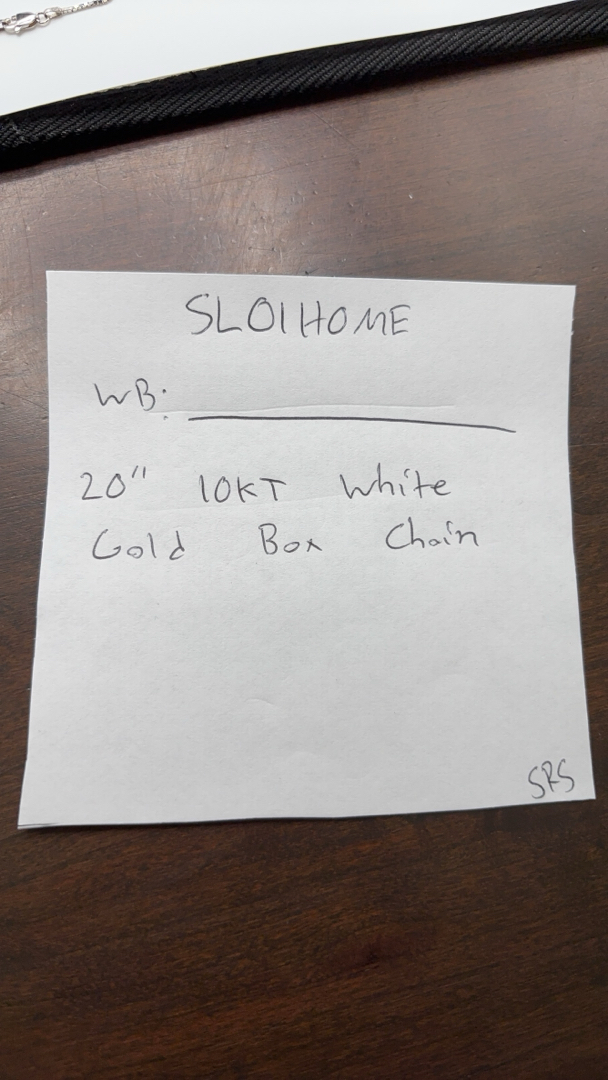 SLO1HOME
WB:
20" 10KT White
Gold Box Chain
SRS